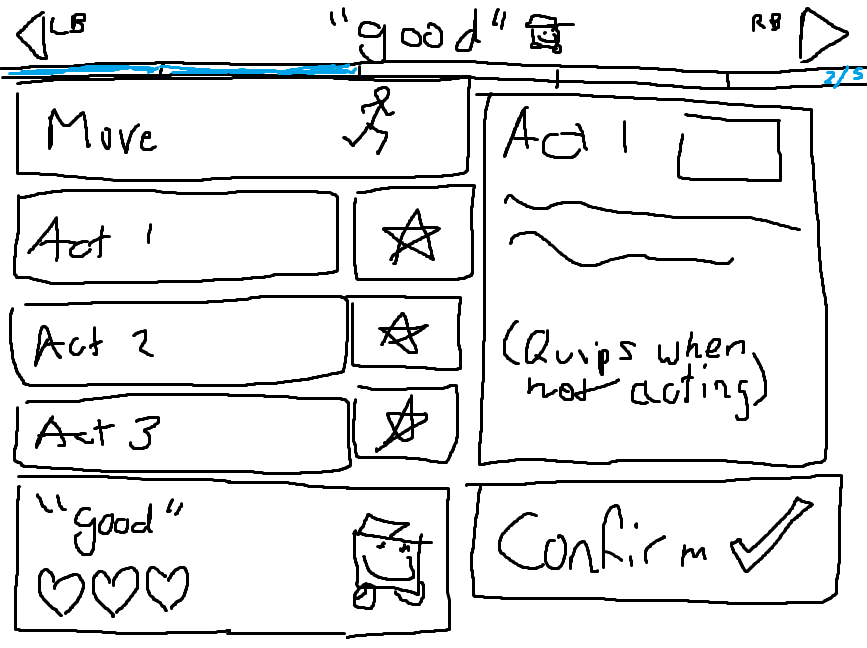 LB "good" RB
2/5
Move
Act 1
Act 2
Act 3
"good"
Act 1
(Quips when
not acting)
Confirm